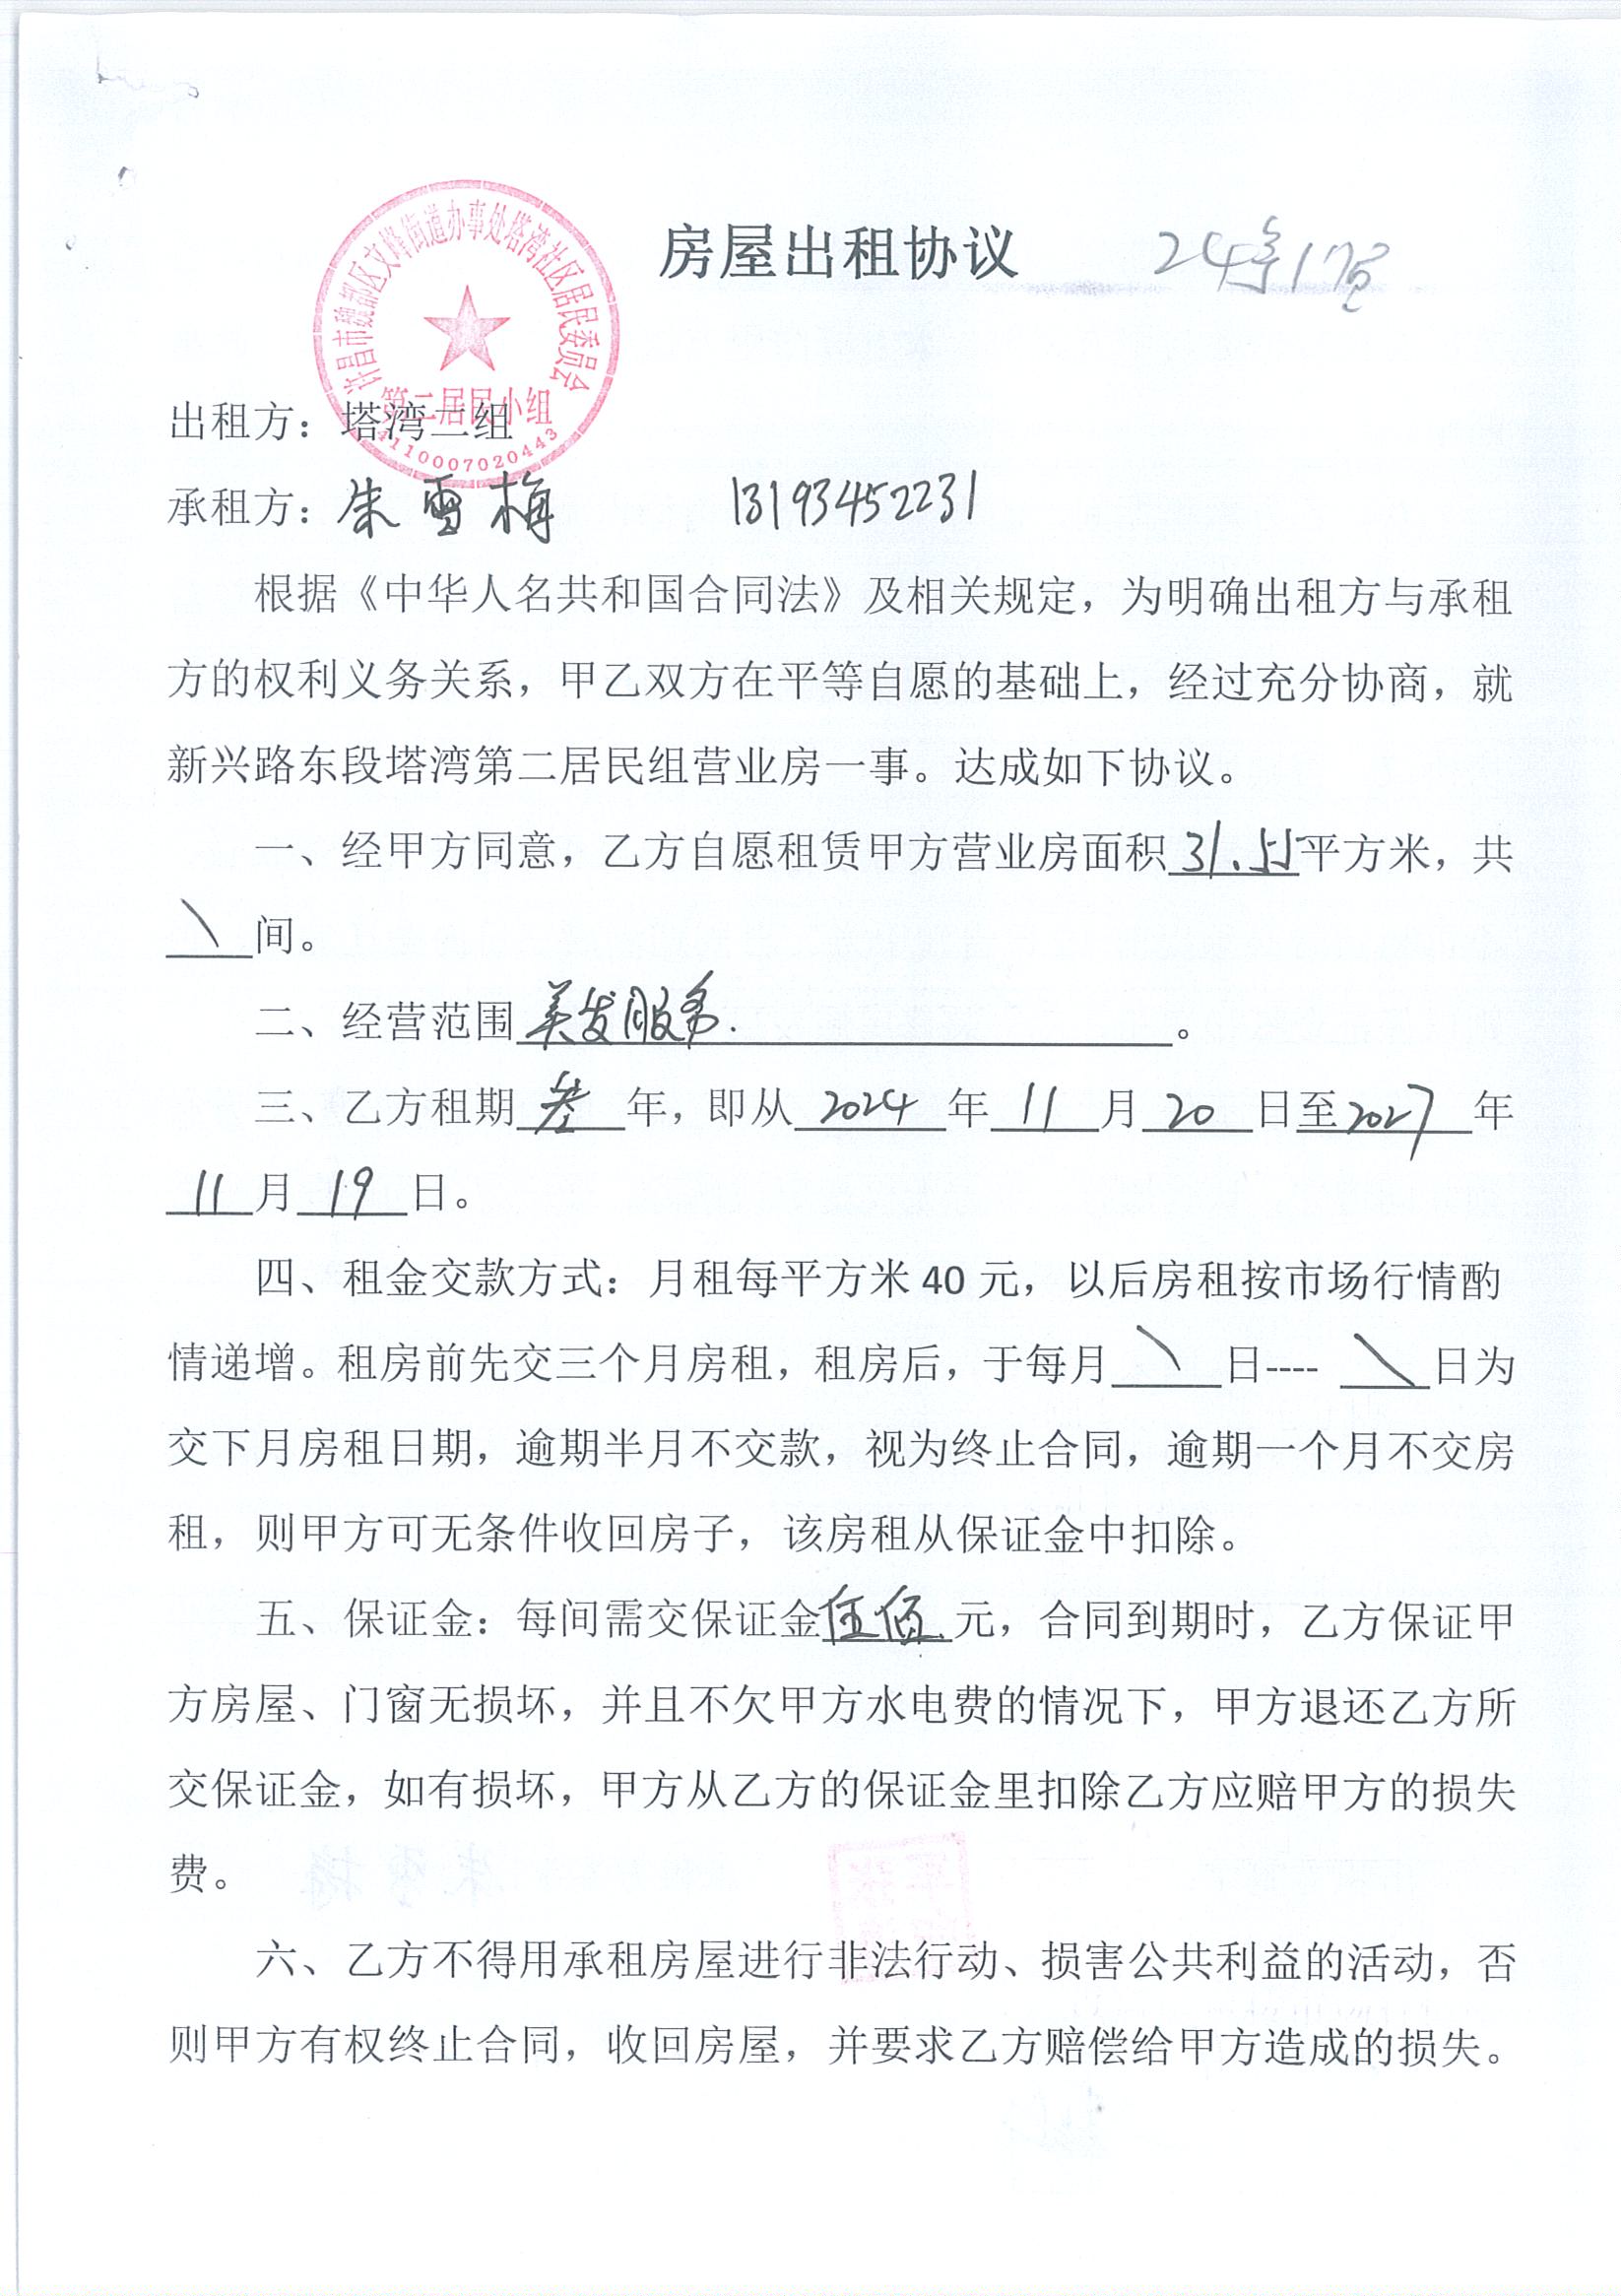 房屋出租协议
许昌市魏都区文峰街道办事处塔湾社区居民委员会
第二居民小组
4110007020443
出租方：塔湾二组
承租方：朱雪梅 13193452231
根据《中华人名共和国合同法》及相关规定，为明确出租方与承租
方的权利义务关系，甲乙双方在平等自愿的基础上，经过充分协商，就
新兴路东段塔湾第二居民组营业房一事。达成如下协议。
一、经甲方同意，乙方自愿租赁甲方营业房面积31.55平方米，共
\间。
二、经营范围美发服务.。
三、乙方租期叁年，即从2024年11月20日至2027年
11月19日。
四、租金交款方式：月租每平方米40元，以后房租按市场行情酌
情递增。租房前先交三个月房租，租房后，于每月\日----\日为
交下月房租日期，逾期半月不交款，视为终止合同，逾期一个月不交房
租，则甲方可无条件收回房子，该房租从保证金中扣除。
五、保证金：每间需交保证金伍佰元，合同到期时，乙方保证甲
方房屋、门窗无损坏，并且不欠甲方水电费的情况下，甲方退还乙方所
交保证金，如有损坏，甲方从乙方的保证金里扣除乙方应赔甲方的损失
费。
六、乙方不得用承租房屋进行非法行动、损害公共利益的活动，否
则甲方有权终止合同，收回房屋，并要求乙方赔偿给甲方造成的损失。